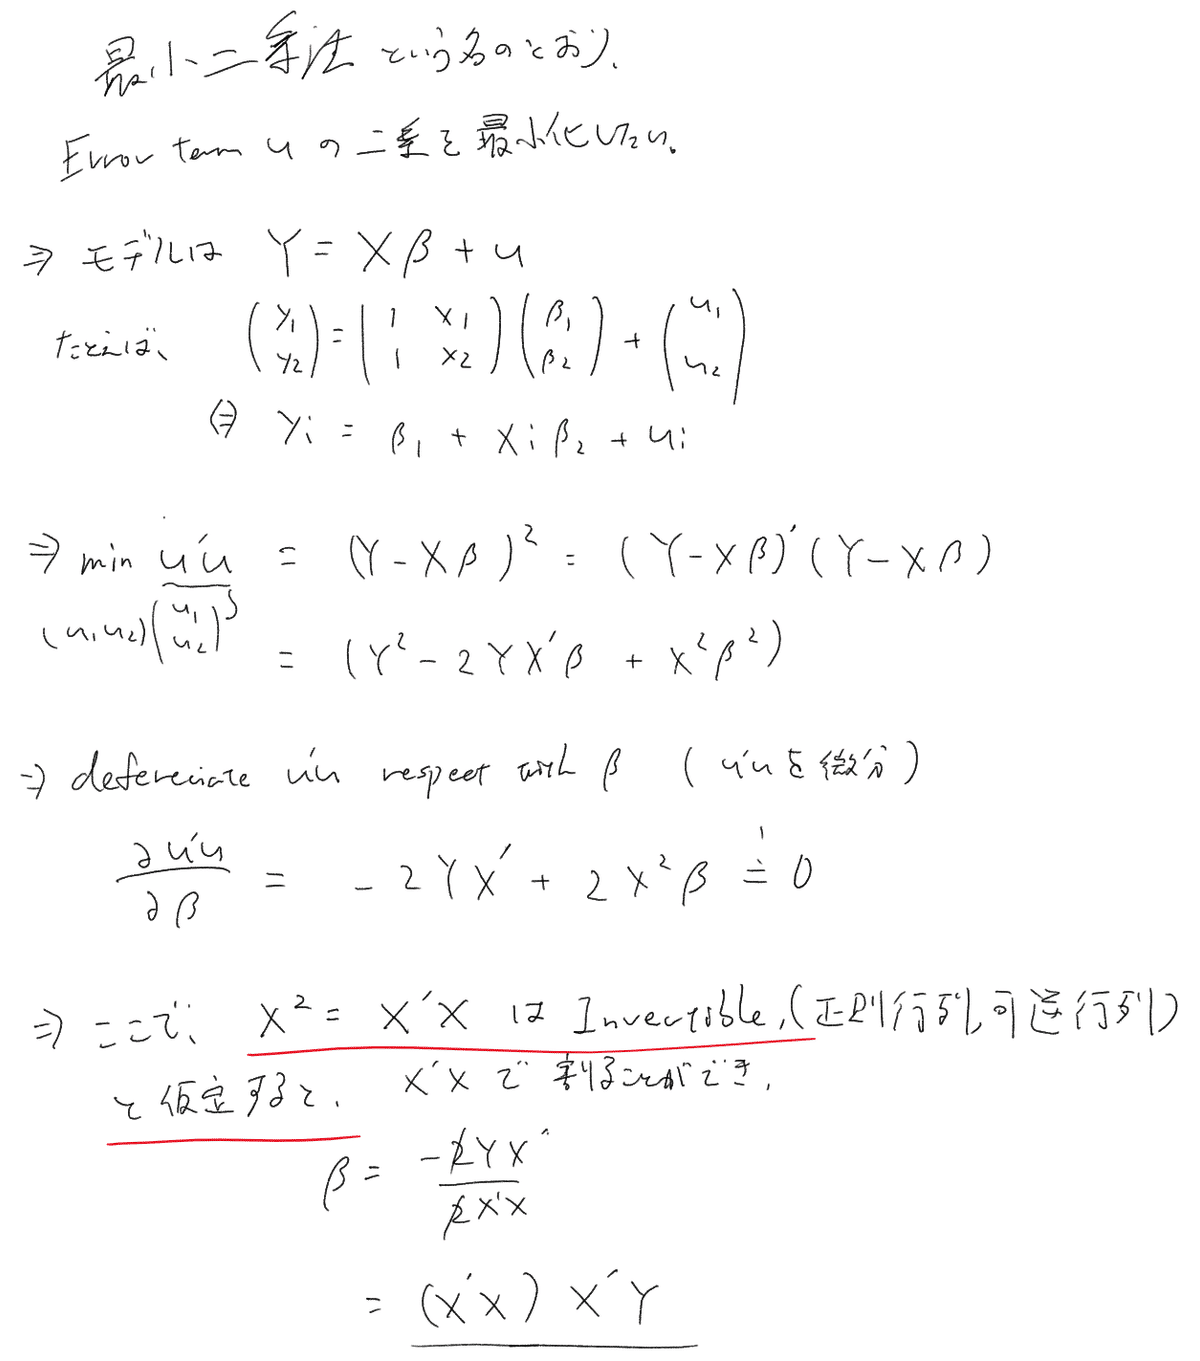 最小二乗法 という名のとおり、
Error term u の二乗を最小化したい。
⇒ モデルは Y = Xβ + u
たとえば、 (y1 y2) = (1 x1 1 x2)(β1 β2) + (u1 u2)
⇔ yi = β1 + xiβ2 + ui
⇒ min u'u = (Y - Xβ)² = (Y - Xβ)'(Y - Xβ)
(u1 u2)(u1 u2) = (Y² - 2YX'β + X²β²)
⇒ defereciate u'u respect with β (u'uを微分)
∂u'u/∂β = -2YX' + 2X²β = 0
⇒ ここで、 X² = X'X は Invertible,(正則行列,可逆行列)
と仮定すると、 X'X で割ることができ、
β = -2YX' / 2X'X
= (X'X) X'Y